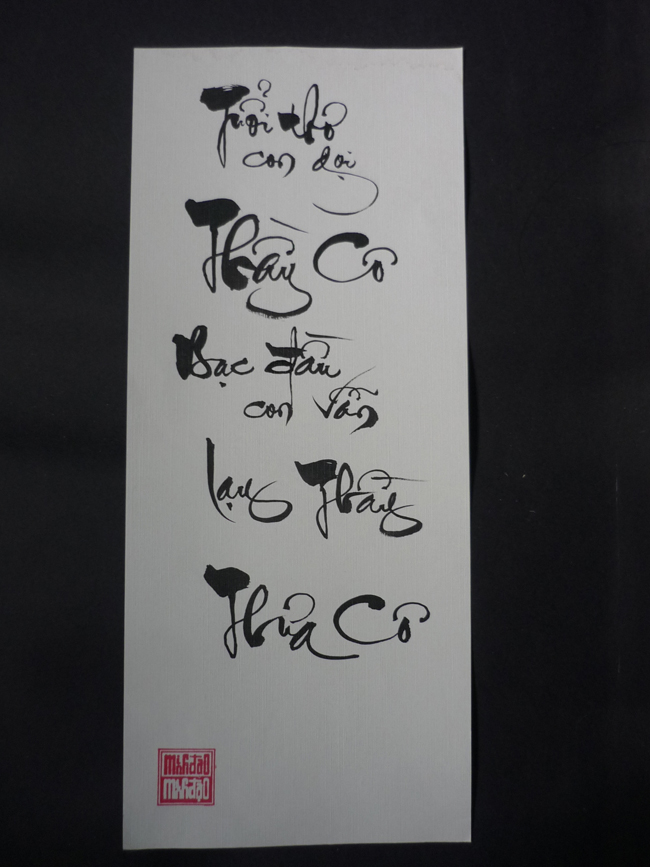 Tuổi nhỏ
con dại
Thầy Cô
Bạc đầu
con vẫn
lạy Thầy
Thưa Cô
minhđạo
minhđạo